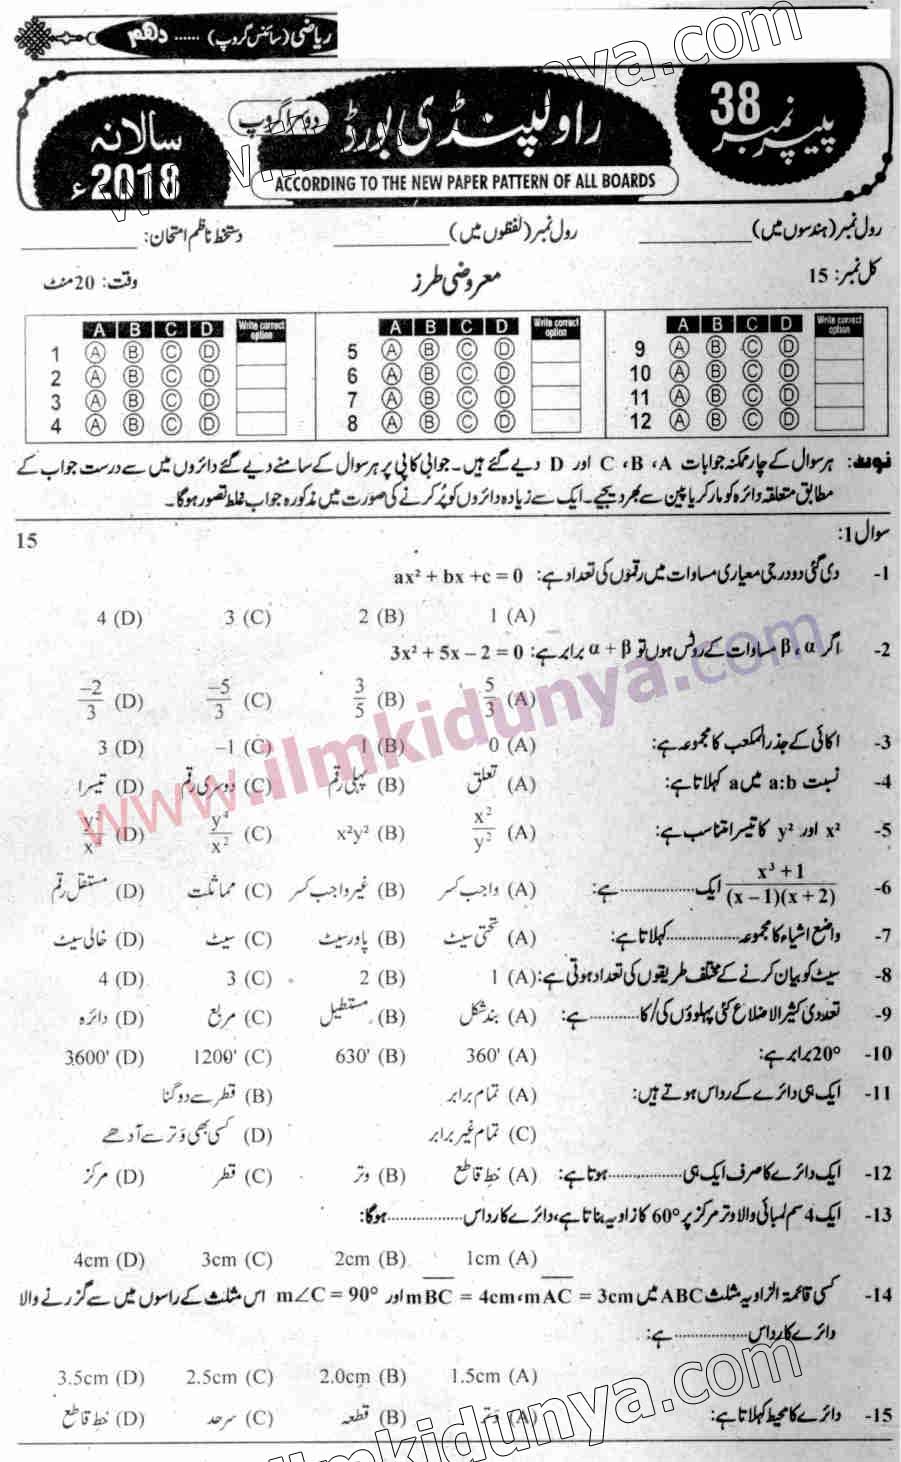 ریاضی (سائنس گروپ) ...... دہم
پیپر نمبر 38
راولپنڈی بورڈ
دوسرا گروپ
سالانہ 2018ء
ACCORDING TO THE NEW PAPER PATTERN OF ALL BOARDS
رول نمبر (ہندسوں میں) ____________ رول نمبر (لفظوں میں) ____________ دستخط ناظم امتحان: ____________
کل نمبر: 15 معروضی طرز وقت: 20 منٹ
A B C D Write correct option A B C D Write correct option A B C D Write correct option
1 A B C D 5 A B C D 9 A B C D
2 A B C D 6 A B C D 10 A B C D
3 A B C D 7 A B C D 11 A B C D
4 A B C D 8 A B C D 12 A B C D
نوٹ: ہر سوال کے چار ممکنہ جوابات A، B، C اور D دیے گئے ہیں۔ جوابی کاپی پر ہر سوال کے سامنے دیے گئے دائروں میں سے درست جواب کے
مطابق متعلقہ دائرہ کو مارکر یا پین سے بھر دیجیے۔ ایک سے زیادہ دائروں کو پُر کرنے کی صورت میں مذکورہ جواب غلط تصور ہوگا۔
سوال 1: 15
1- دی گئی دو درجی معیاری مساوات میں رقموں کی تعداد ہے: ax² + bx +c = 0
(A) 1 (B) 2 (C) 3 (D) 4
2- اگر α، β مساوات کے روٹس ہوں تو α + β برابر ہے: 3x² + 5x – 2 = 0
(A) 5/3 (B) 3/5 (C) –5/3 (D) –2/3
3- اکائی کے جذر المکعب کا مجموعہ ہے: (A) 0 (B) 1 (C) –1 (D) 3
4- نسبت a:b میں a کہلاتا ہے: (A) تعلق (B) پہلی رقم (C) دوسری رقم (D) تیسرا
5- x² اور y² کا تیسرا متناسب ہے: (A) x²/y² (B) x²y² (C) y⁴/x² (D) y²/x
6- x³ +1/(x – 1)(x + 2) ایک .................. ہے: (A) واجب کسر (B) غیر واجب کسر (C) مماثلت (D) مستقل رقم
7- واضع اشیاء کا مجموعہ .................. کہلاتا ہے: (A) تحتی سیٹ (B) پاور سیٹ (C) سیٹ (D) خالی سیٹ
8- سیٹ کو بیان کرنے کے مختلف طریقوں کی تعداد ہوتی ہے: (A) 1 (B) 2 (C) 3 (D) 4
9- تعددی کثیر الاضلاع کئی پہلوؤں کی/کا ............ ہے: (A) بند شکل (B) مستطیل (C) مربع (D) دائرہ
10- 20° برابر ہے: (A) 360' (B) 630' (C) 1200' (D) 3600'
11- ایک ہی دائرے کے رداس ہوتے ہیں: (A) تمام برابر (B) قطر سے دوگنا
(C) تمام غیر برابر (D) کسی بھی وَتر سے آدھے
12- ایک دائرے کا صرف ایک ہی .................. ہوتا ہے: (A) خط قاطع (B) وتر (C) قطر (D) مرکز
13- ایک 4 سم لمبائی والا وتر مرکز پر 60° کا زاویہ بناتا ہے، دائرے کا رداس .................. ہوگا:
(A) 1cm (B) 2cm (C) 3cm (D) 4cm
14- کسی قائمۃ الزاویہ مثلث ABC میں mAC = 3cm، mBC = 4cm اور m∠C = 90° اس مثلث کے راسوں میں سے گزرنے والا
دائرے کا رداس .................. ہے:
(A) 1.5cm (B) 2.0cm (C) 2.5cm (D) 3.5cm
15- دائرے کا محیط کہلاتا ہے: (A) وَتر (B) قطعہ (C) سرحد (D) خط قاطع
www.ilmkidunya.com
www.ilmkidunya.com
ilmkidunya.com